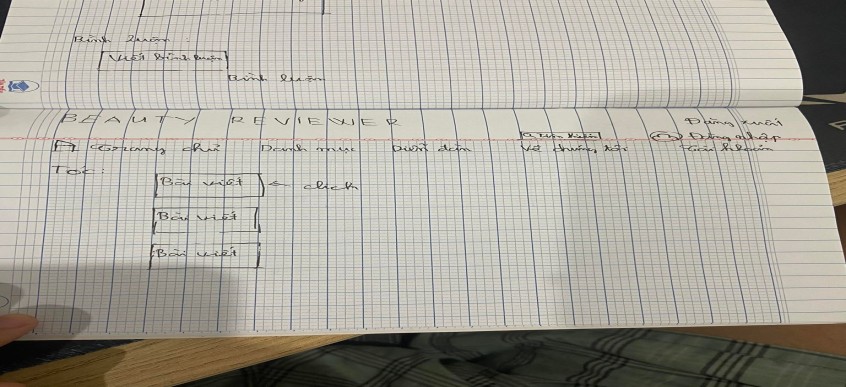 Bình luận :
Viết bình luận
Bình luận
BEAUTY REVIEWER
Đăng xuất
Tìm kiếm
Đăng nhập
Trang chủ Danh mục Diễn đàn Về chúng tôi Tài khoản
Tóc :
Bài viết ← click
Bài viết
Bài viết